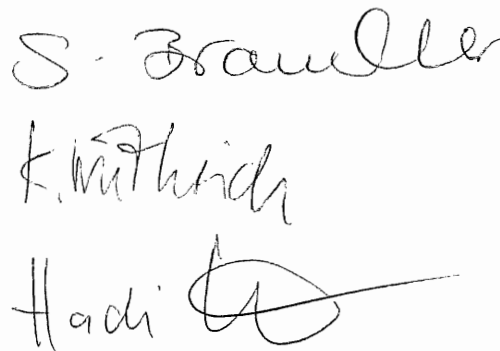 S. Braudler
K. Wüthrich
Hadi